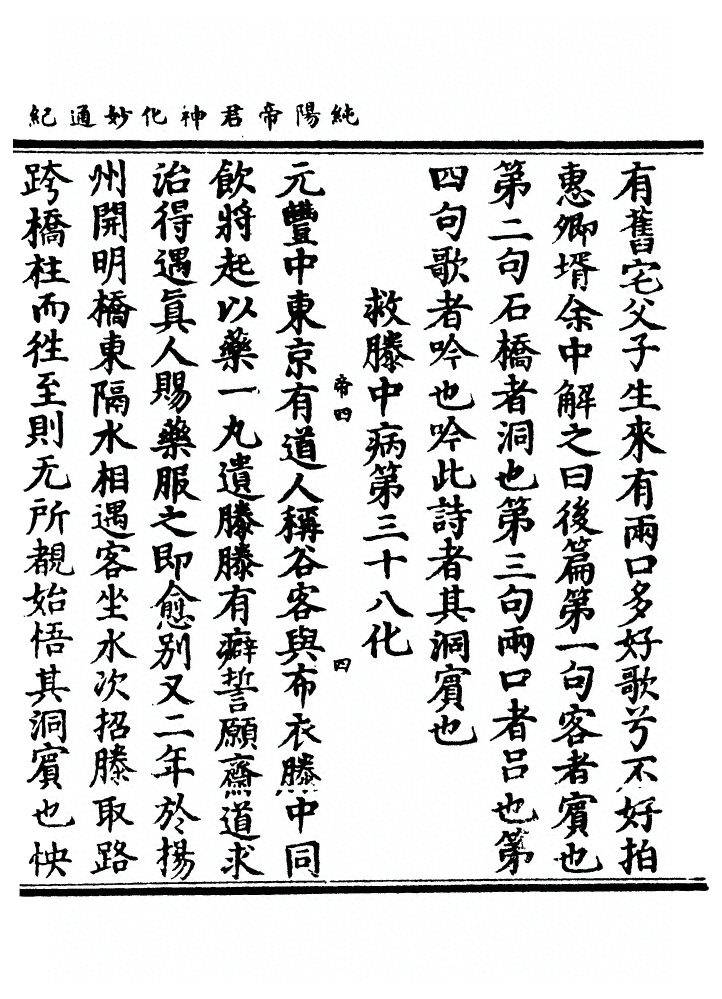 純陽帝君神化妙通紀
有舊宅父子生來有兩口多好歌兮不好拍
惠卿壻余中解之曰後篇第一句客者賓也
第二句石橋者洞也第三句兩口者吕也第
四句歌者吟也吟此詩者其洞賓也
救滕中病第三十八化
帝四
四
元豐中東京有道人稱谷客與布衣滕中同
飲將起以藥一丸遺滕滕有癖誓願齋道求
治得遇眞人賜藥服之即愈別又二年於揚
州開明橋東隔水相遇客坐水次招滕取路
跨橋柱而徃至則无所覩始悟其洞賓也怏